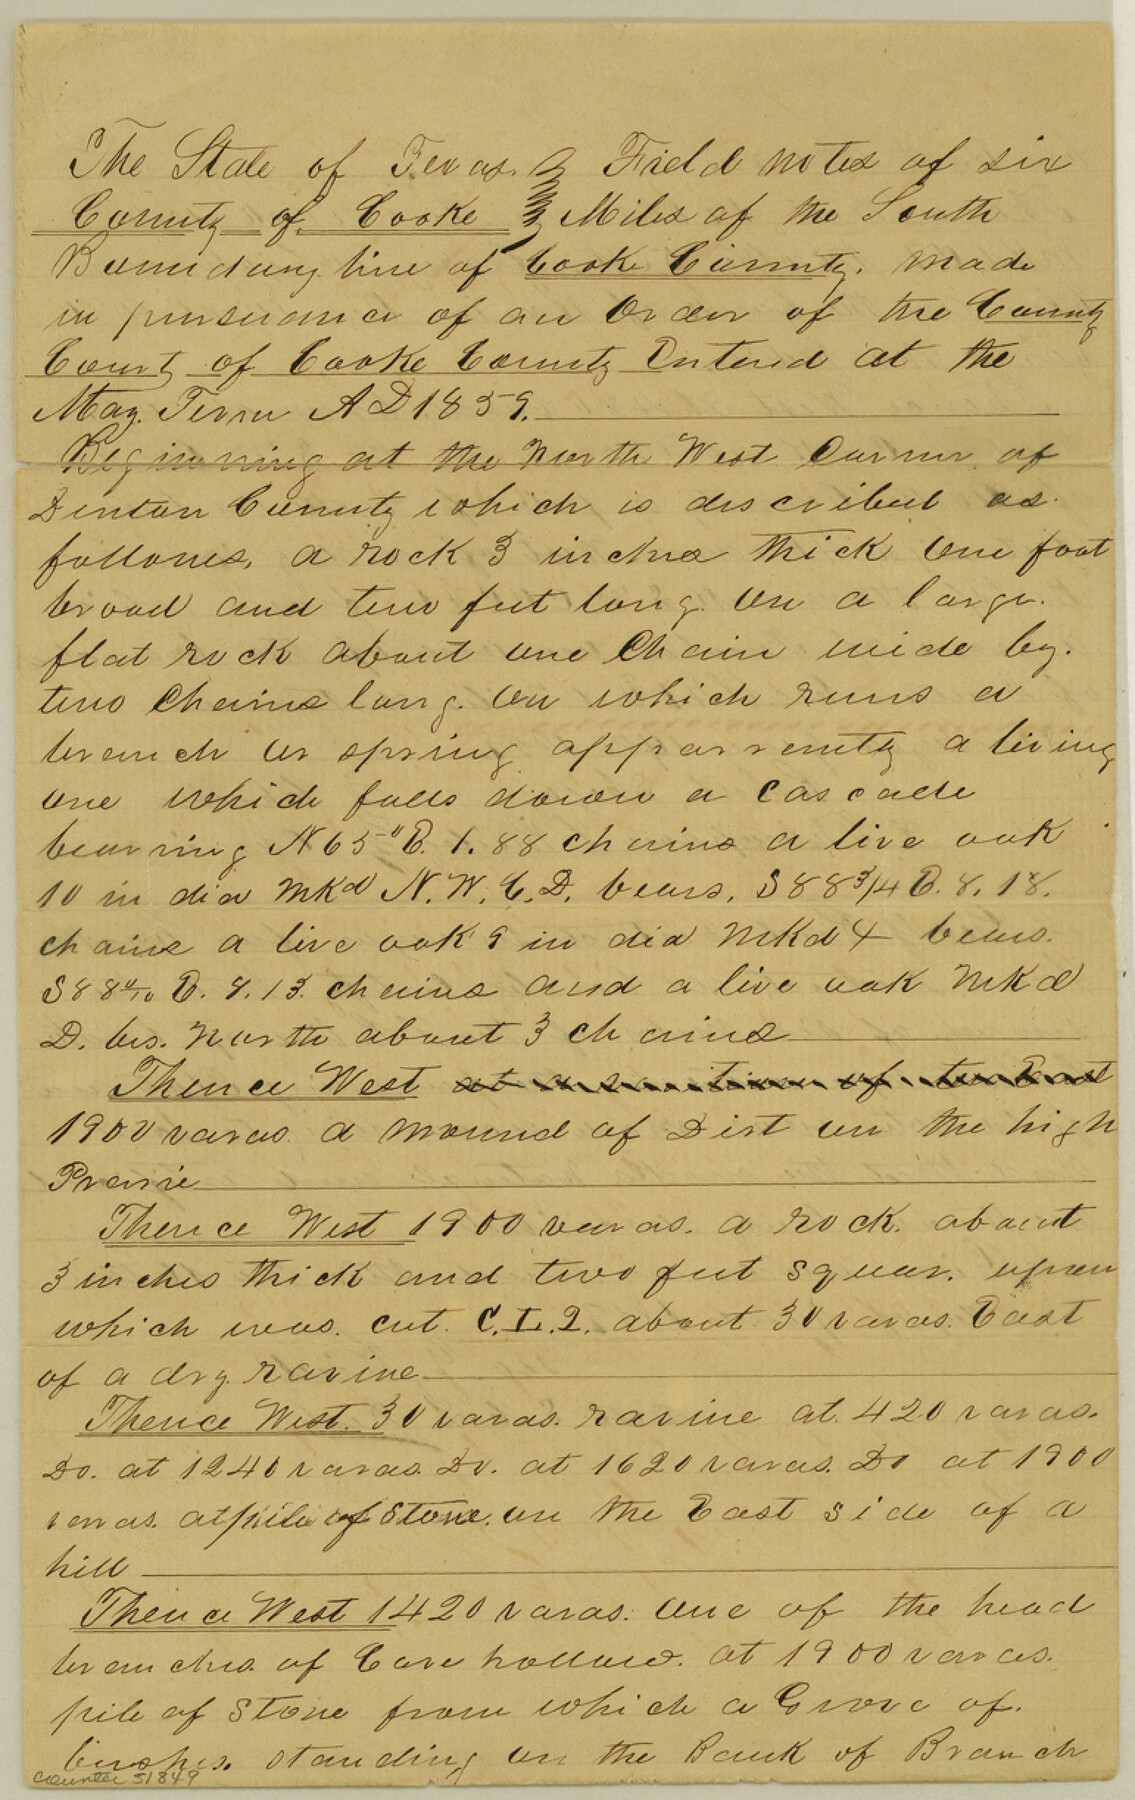 The State of Texas. Field notes of six
County of Cooke Miles of the South
Boundary line of Cooke County. made
in pursuance of an Order of the County
Court of Cooke County Entered at the
May. Term A D 1859.
Beginning at the North West Corner of
Denton County which is described as
follows, a rock 3 inches thick One foot
broad and two feet long. On a large.
flat rock about one Chain wide by.
two Chains long. On which runs a
branch or spring apparrently a living
one which falls down a cascade
bearring N 65° E. 1.88 chains a live oak
10 in dia mkd N.W.C.D. bears. S 88 3/4 E. 8.18.
chains a live oak 9 in dia mkd 4 bears.
S 88 4/10 E. 8.13. chains and a live oak mkd
D. brs. North about 3 chains
Thence West at a of the East
1900 varas. a mound of Dirt on the high
Prairie
Thence West 1900 varas. a rock. about
3 inches thick and two feet squar. upon
which was. cut. C.L.2. about 30 varas. East
of a dry. ravine
Thence West. 30 varas. ravine at. 420 varas.
Do. at 1240 varas. Do. at 1620 varas. Do at 1900
varas. at pile of Stone. on the East side of a
hill
Thence West 1420 varas. One of the head
branches. of Cove hollow. at 1900 varas.
pile of Stone from which a Grove of.
bushes. standing on the Bank of Branch
counter 51849